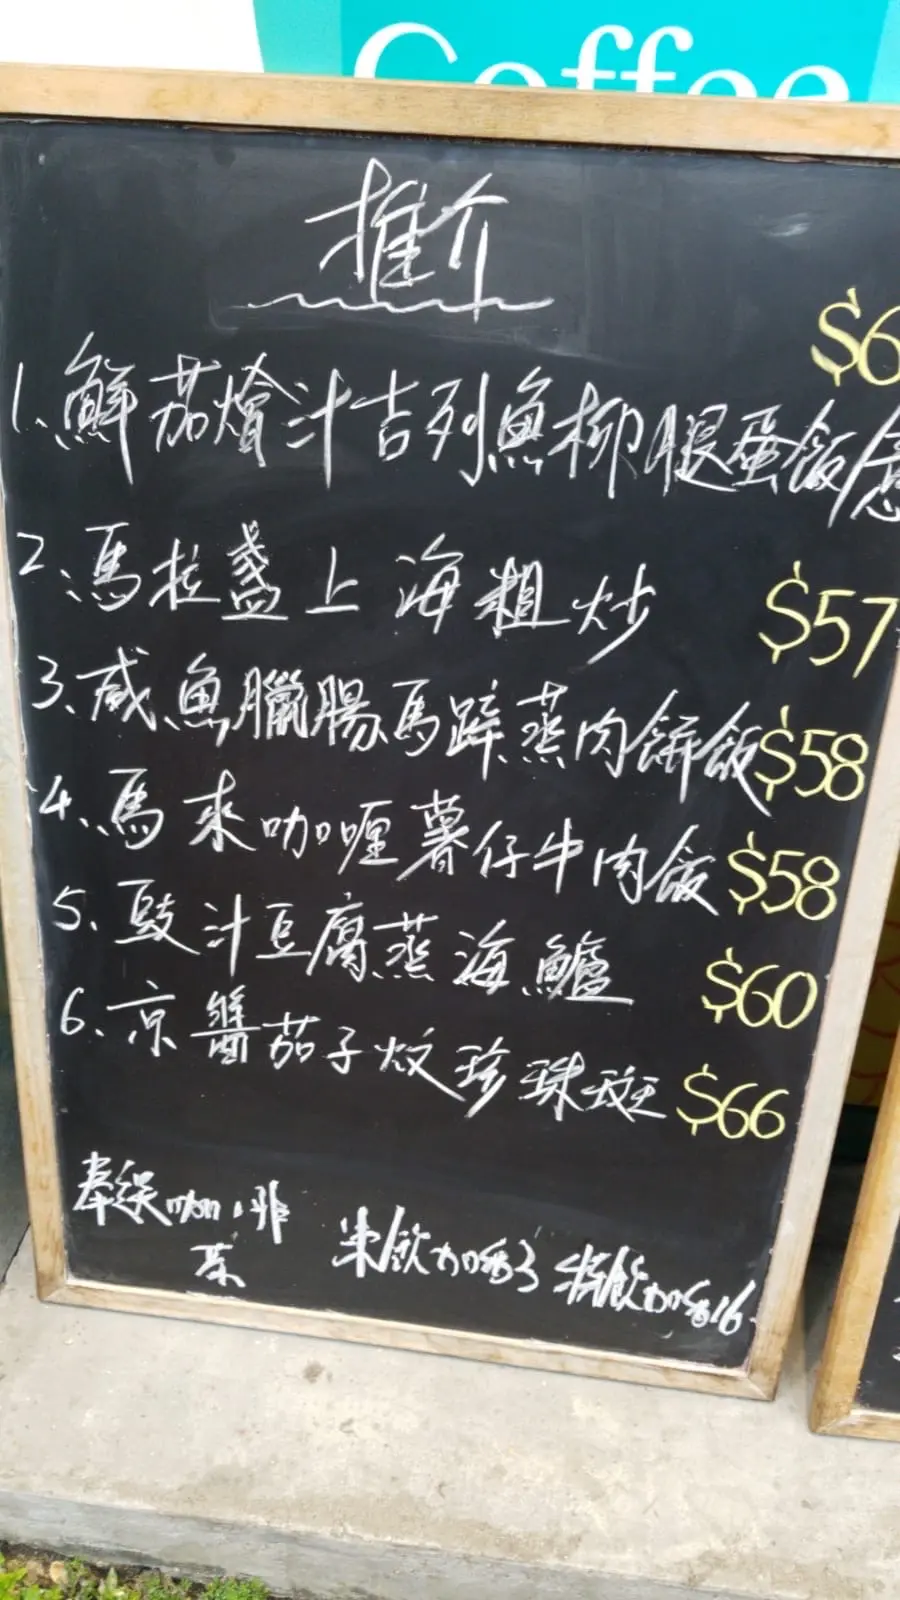 Coffee
推介
$6
1、鮮茄燴汁吉列魚柳腿蛋飯/意
2、馬拉盞上海粗炒 $57
3、咸魚臘腸馬蹄蒸肉餅飯 $58
4、馬來咖喱薯仔牛肉飯 $58
5、豉汁豆腐蒸海鱸 $60
6、京醬茄子炆珍珠斑 $66
奉送咖啡
茶
凍飲加$3 特飲加$16